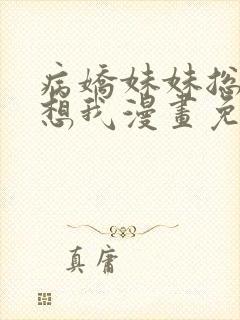 病嬌妹妹总
想我漫畫免
真庸